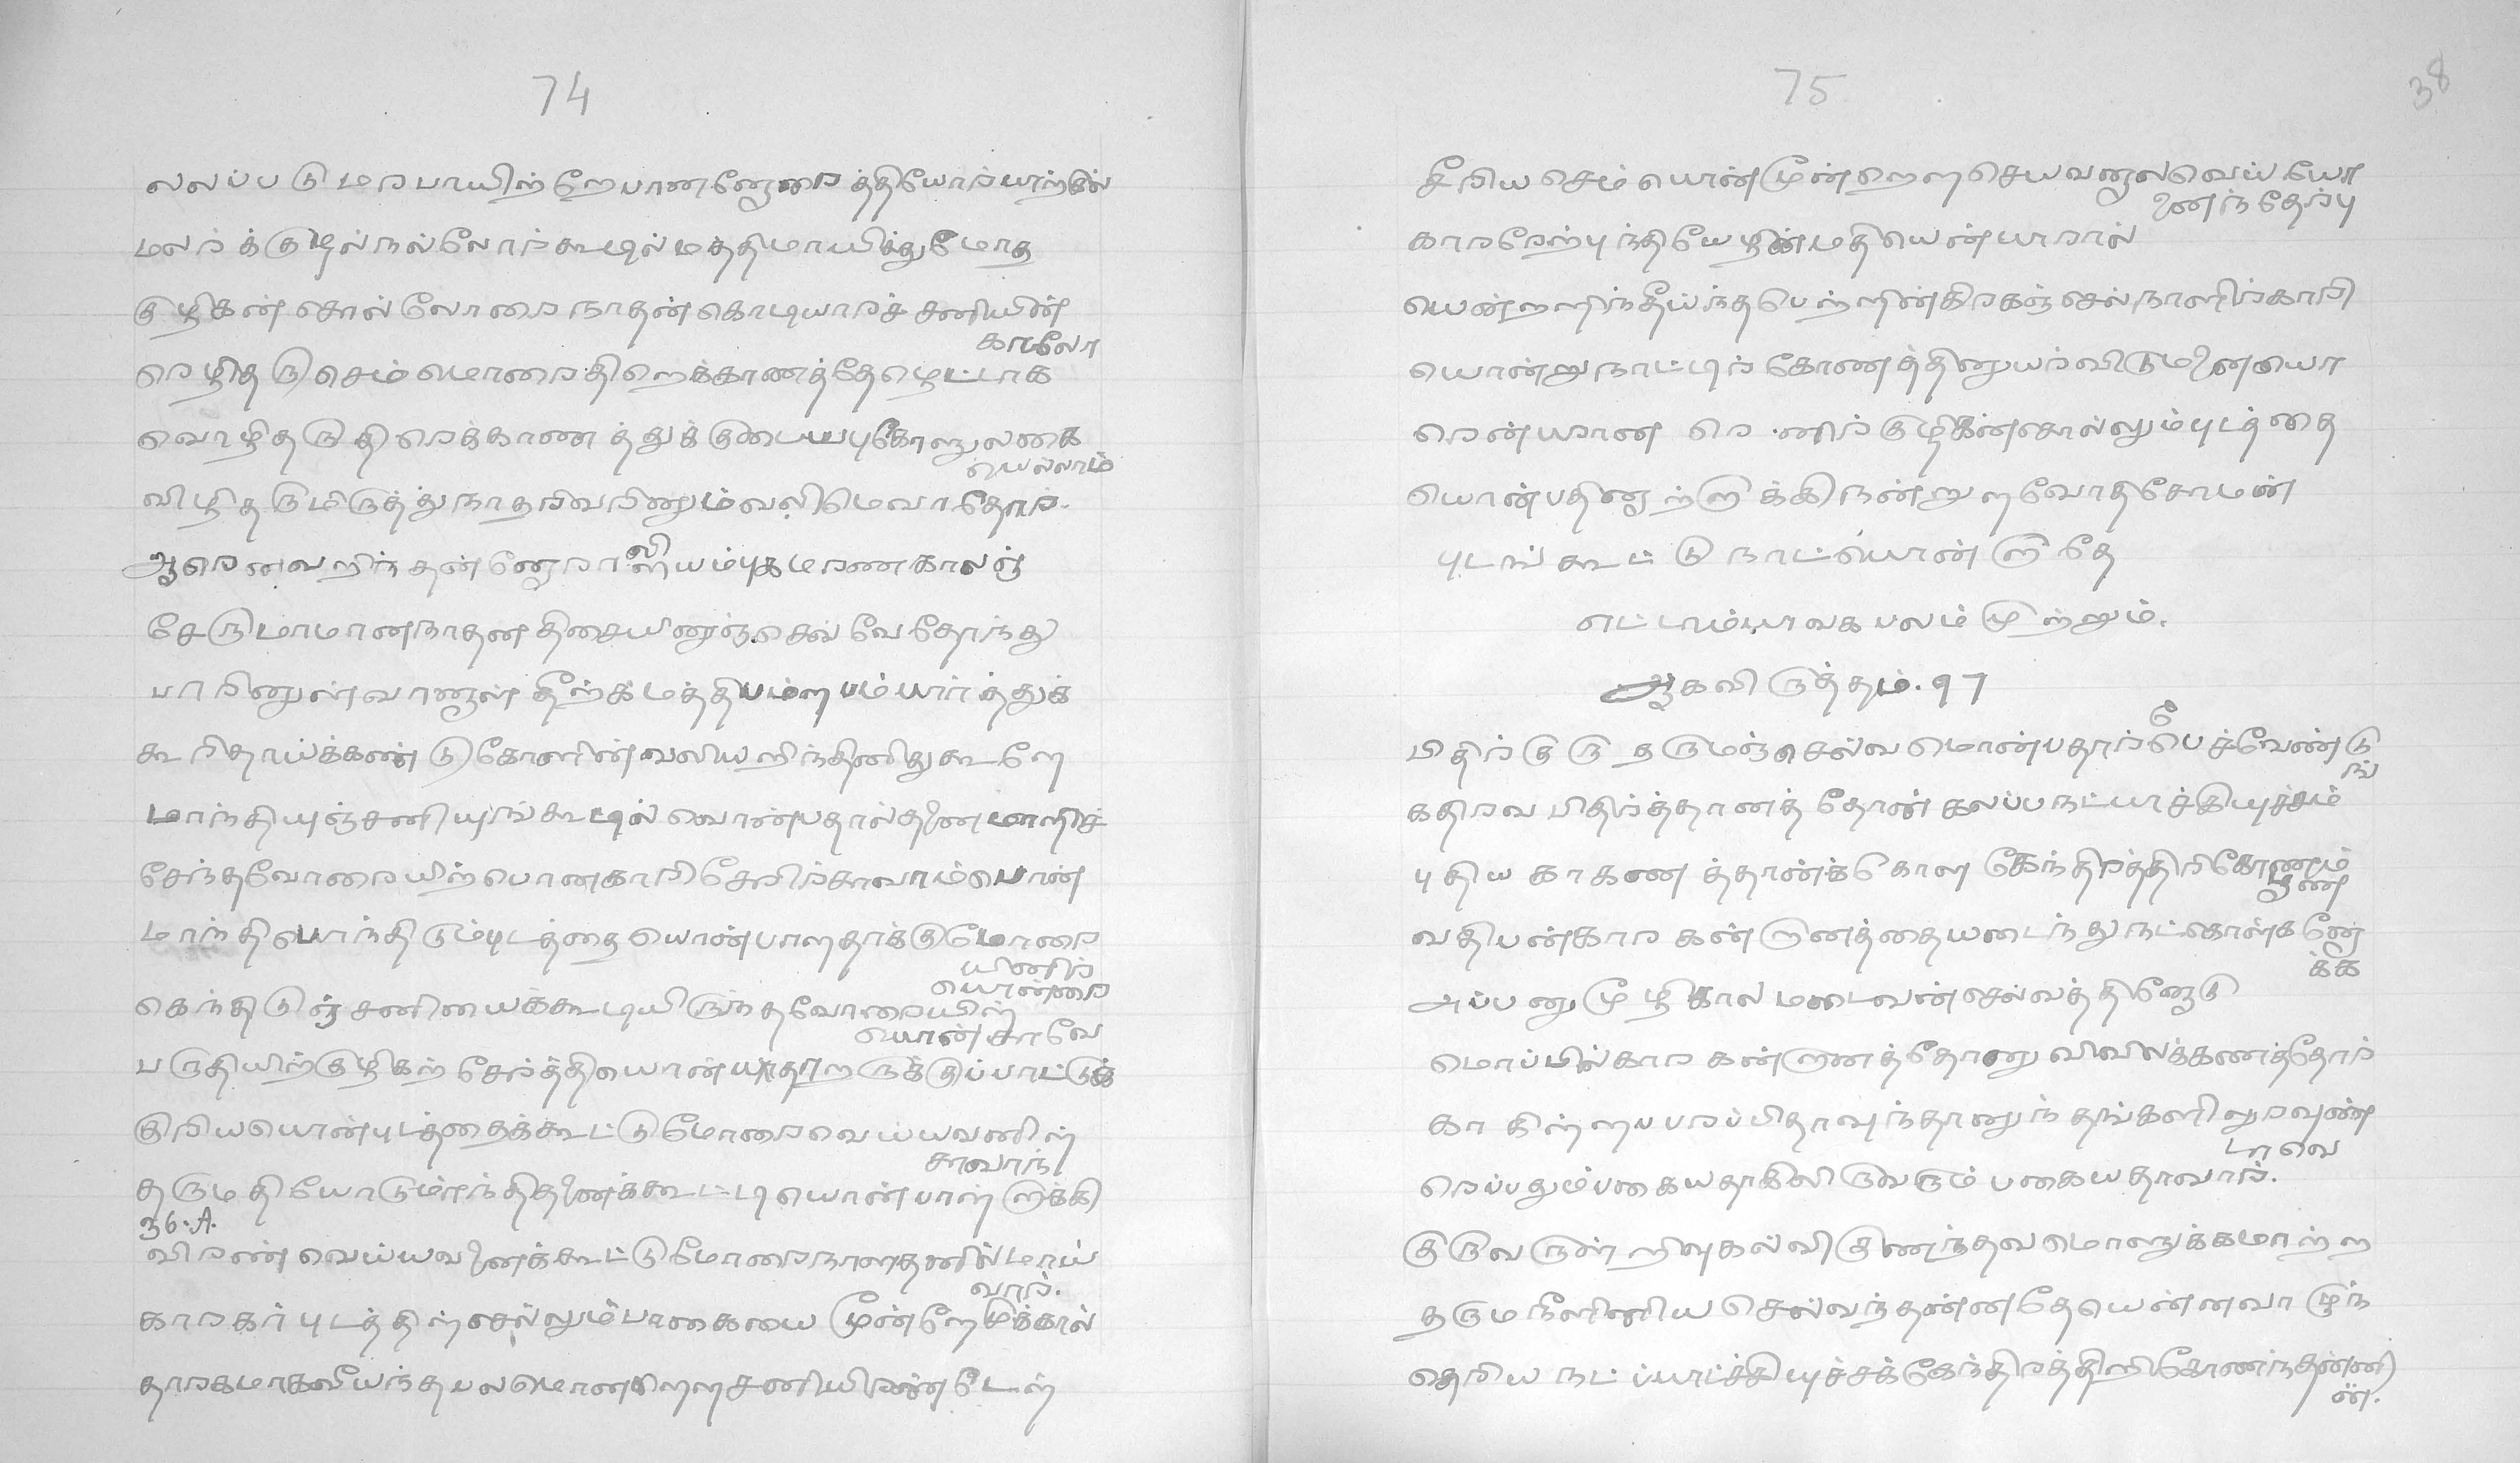 74
லலப்படு மரபாயிற் றேபானனேரை த்தியோர்யாற்குள்
மலர்க்குழல்நல்லோர்கூடில் மத்திமாயித்துமோத
குழிகன் சொல்லோரை நாதன் கொடியாரச் சனியின்
காலோ
ரெழித ரு செம்மொரை திரெக்காணத்தேழெட்டாக
வொழிதரு திரெக்காண த்துக் குடையபுகோளுலகை
யெல்லாம்
விழித ருமிடுத்துநாதரிவரினும்வலிமெவா தோர்.
ஆரெனவறிந் தன்னேரா ளியம்புக மரண காலஞ்
லி
சேருமாமானநாதன திசையினுஞ்செல் வே தோந்து
பாரினுள்வானுள் தீற்க மத்திபம்ளபம்யார்த்துக்
கூரிதாய்க்கண்டு கோளின்வலியறிந்தினிதுகூளே
மாந்தியுஞ்சனியுங்கூடில் வொண்பதால்தனை மாளிச்
சேந்தவோரையிற்பொனகாரி சேரிர்சாவாம்பொன்
மாந்தியொந்திடும்புடத்தை யொன்பாளதாக்குமோரை
யினிர்
யொன்றை
கெந்திடுஞ் சனியைக்கூடியிருந்தவோரையின்
யொன் சாவே
பருதியிற்குழிகற் சேர்த்தியொன்பதாறருக்குப்பாட்டுக்
குரியயொன்புடத்தைக்கூட்டுமோரைவெய்யவனில்
சாவாந்
தருமதியோடும்ரந்திதனைக்கூட்டியொன்பான் றாக்கி
36.A.
விரண் வெய்யவனைக்கூட்டுமோரைநாளதனில்மாய்
வார்.
காரகர் புடத்தின்செல்லும்பாகையை மூன்றேமுக்கால்
தாரகமாகவீயந்தபலமொனறெளசனியிரண்டேல்
75
38
சீரிய செம்பொன்மூன்றெளசெயவனுல்வெய்யோ
னைந்தேர்பு
காரரேற்புந்தியேழின்மதியென்பாரால்
யென்றளிந்தீய்ந்தபெற்றின்கிரகஞ்செல்நாளிர்காரி
யொன்றுநாட்டிர் கோணத்தினுயர்விடுமனையொ
ரென்பான ரெ.ளிர்குழிகன்சொல்லும்புடத்தை
யொன்பதினாற்றாக்கிநன்றுளவோதசோமன்
புடங்கூட்டு நாட்யொன் றிதே
எட்டாம்பாவக பலம் முற்றும்.
ஆகவிருத்தம். 97
பிதிர்குரு தருமஞ்செல்வமொன்பதார்பெச்வேண்டு
ங்
கதிரவ பிதிர்த்தானத் தோன் கலப்பநட்பாச்சியுச்சம்
புதிய காகண த்தான்க் கோள கேந்திரத்திரிகோணமும்
வதிபன்கார கன் றானத்தையடைந்துநட்கொள்கனே
க்க
அப்பனுமூழிகால் மடைவன்செல்வத்தினேடு
மொப்பில்கார கன்றானத்தோனு விவிலக்கணத்தோர்
கா கிள்ளபபரப்பிதாவுந்தானுந் தங்களிலுரவுண்
டாவெ
ரெப்பதும்பகையதாகிலிருவரும் பகையதாவார்.
குருவருள் றிவுகல்விகுணந்தவமொளுக்கமாற்ற
தருமநீளினிய செல்வந்தன்னதேயென்னவா முந்
தெரிய நட்ப்யாட்ச்சியுச்சக்கேந்திரத்திறிகோணந்தன்னி
ன்.